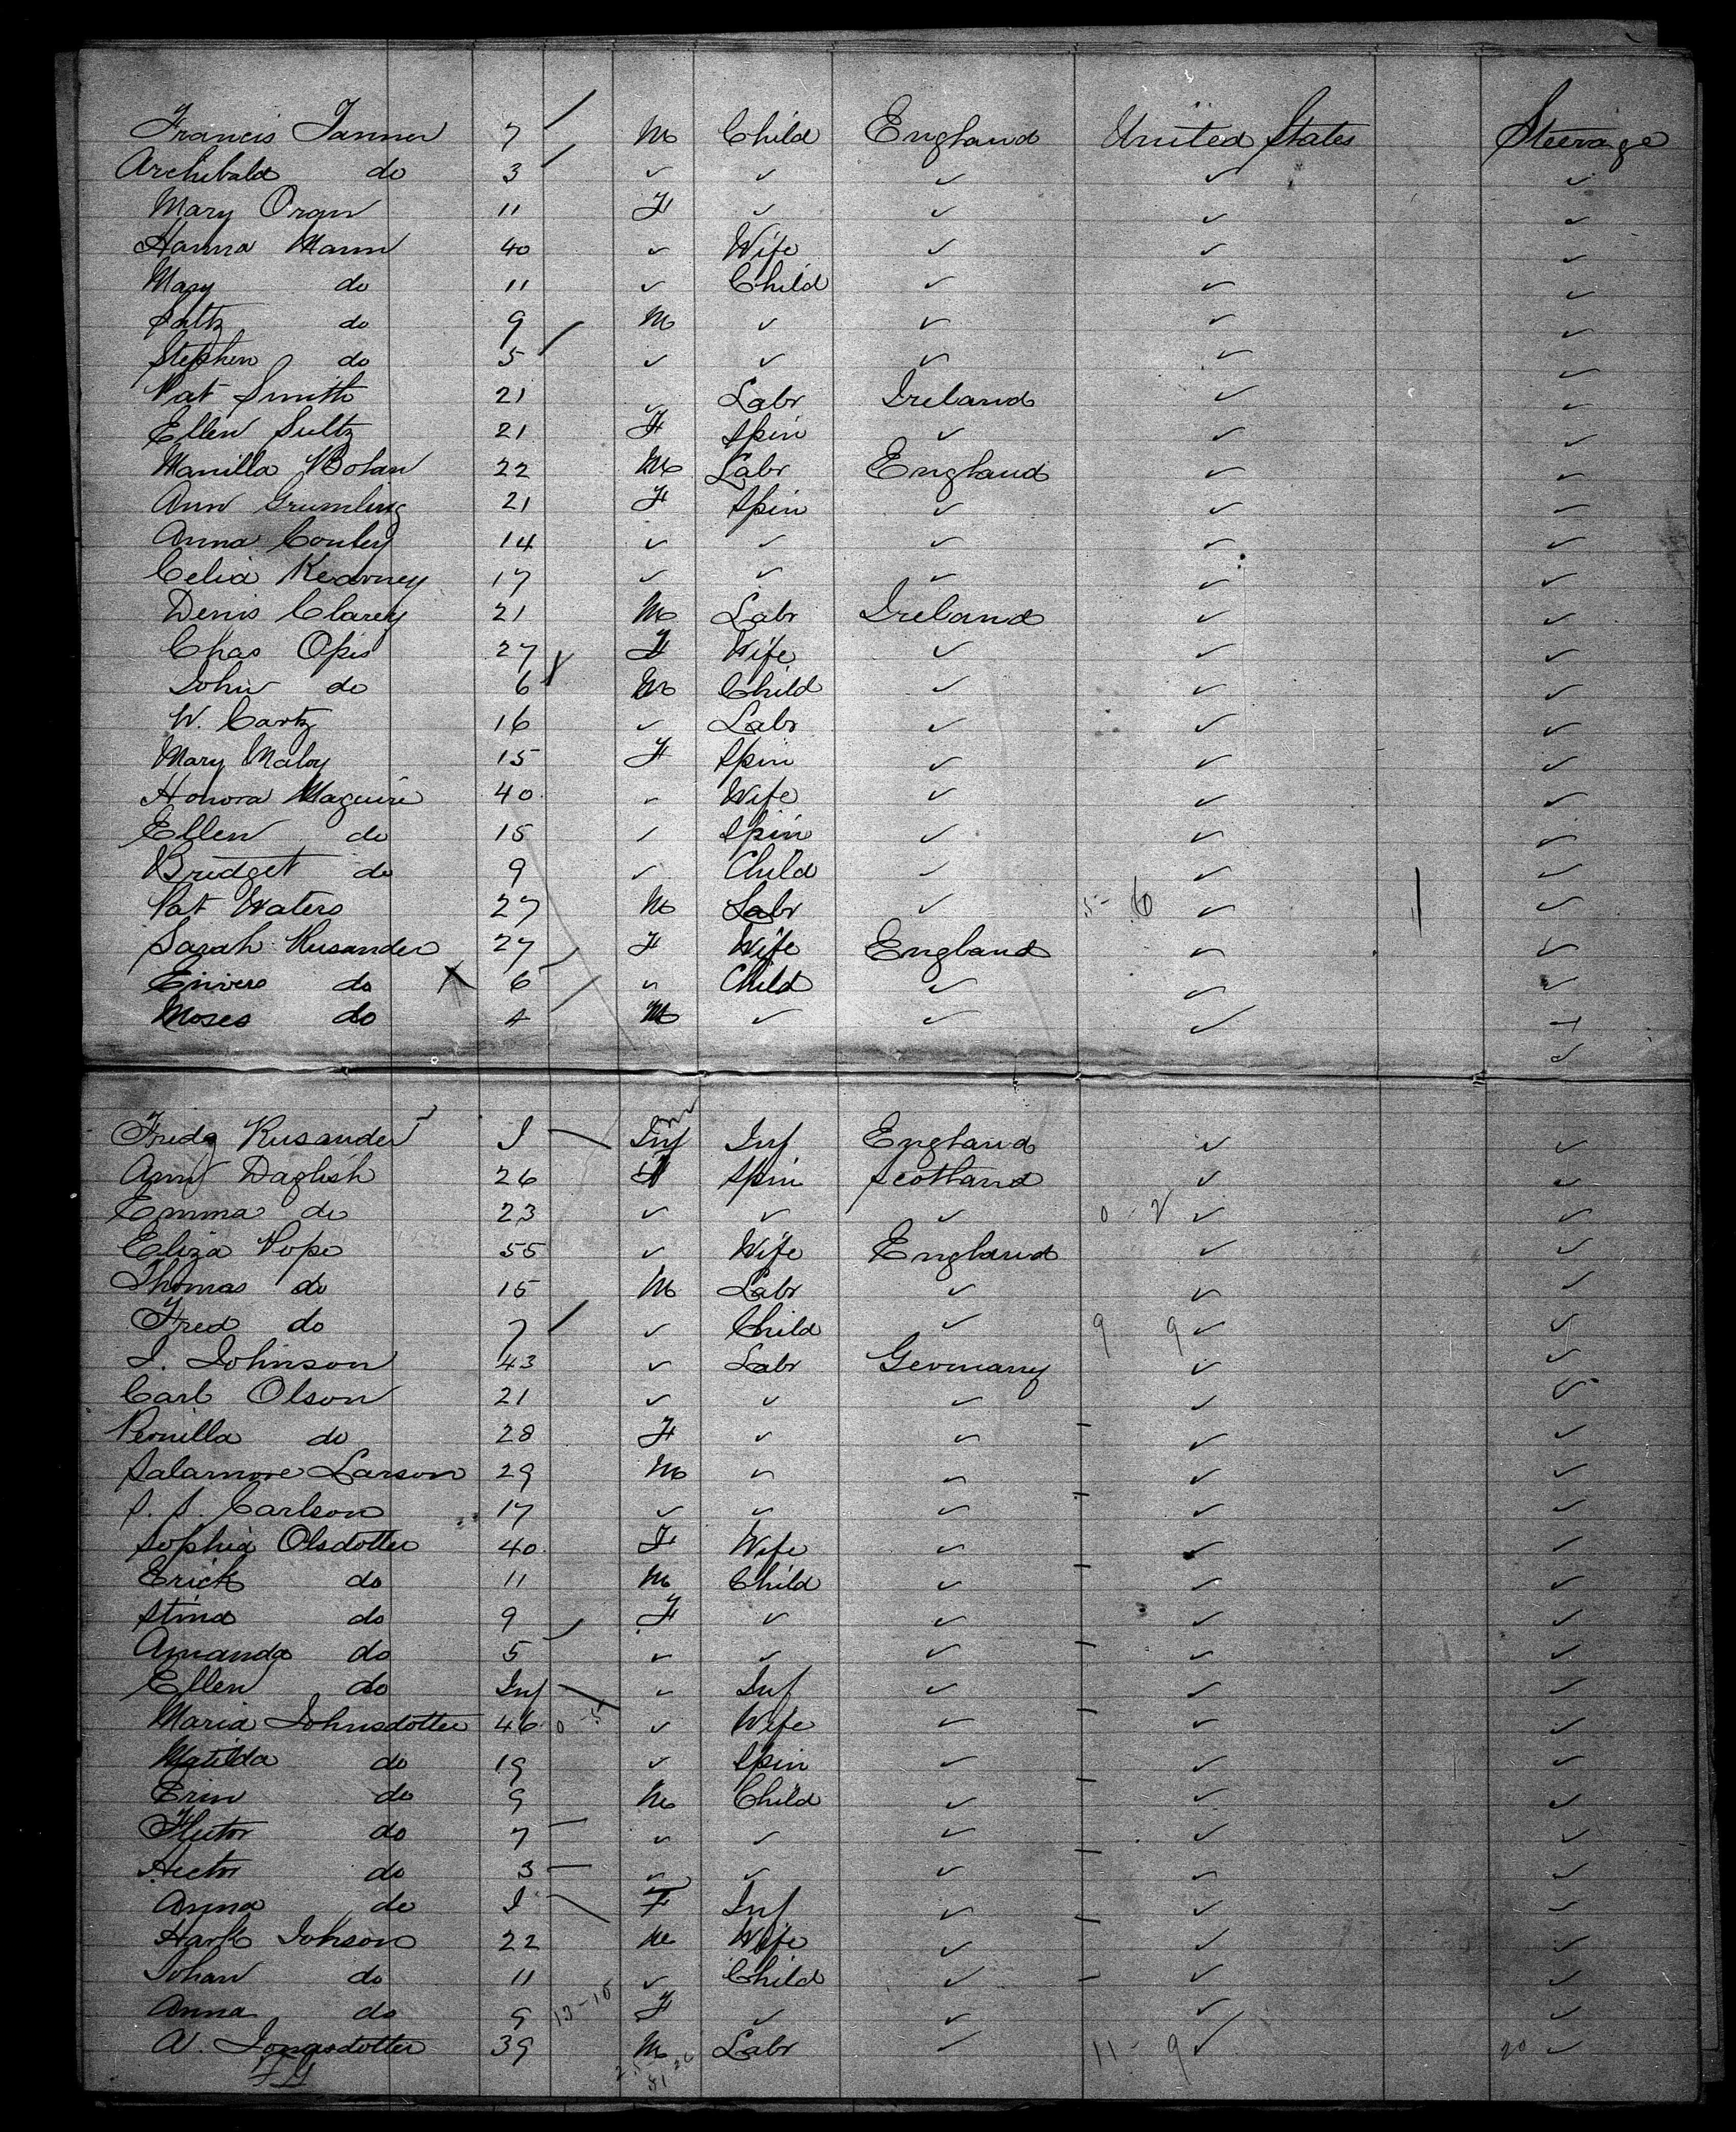 Francis Tanner 7 M Child England United States Steerage
Archibald do 3 ✓ ✓ ✓ ✓ ✓
Mary Oran 11 F ✓ ✓ ✓ ✓
Hanna Mann 40 ✓ Wife ✓ ✓ ✓
Mary do 11 ✓ Child ✓ ✓ ✓
do 9 M ✓ ✓ ✓ ✓
Stephen do 5 ✓ ✓ ✓ ✓ ✓
Pat Smith 21 ✓ Labr Ireland ✓ ✓
Ellen Sultz 21 F Spin ✓ ✓ ✓
Manilla Bolan 22 M Labr England ✓ ✓
Ann Grumling 21 F Spin ✓ ✓ ✓
Anna Conley 14 ✓ ✓ ✓ ✓ ✓
Celia Kearney 17 ✓ ✓ ✓ ✓ ✓
Denis Clarey 21 M Labr Ireland ✓ ✓
Chas Opis 27 F Wife ✓ ✓ ✓
John do 6 M Child ✓ ✓ ✓
W. Cartz 16 ✓ Labr ✓ ✓ ✓
Mary Maloy 15 F Spin ✓ ✓ ✓
Honora Maguire 40 ✓ Wife ✓ ✓ ✓
Ellen do 15 ✓ Spin ✓ ✓ ✓
Bridget do 9 ✓ Child ✓ ✓ ✓
Pat Waters 27 M Labr ✓ ✓ ✓
Sarah Rusander 27 F Wife England ✓ ✓
do 6 ✓ Child ✓ ✓ ✓
Moses do 4 M ✓ ✓ ✓
Frida Rusander I Inf Inf England ✓ ✓
Ann Daglish 26 F Spin Scotland ✓ ✓
Emma do 23 ✓ ✓ ✓ ✓ ✓
Eliza Pope 55 ✓ Wife England ✓ ✓
Thomas do 15 M Labr ✓ ✓ ✓
Fred do 7 ✓ Child ✓ 9 9 ✓ ✓
I. Johnson 43 ✓ Labr Germany ✓ ✓
Carl Olson 21 ✓ ✓ ✓ ✓ ✓
Pernilla do 28 F ✓ ✓ ✓ ✓
Salamore Larson 29 M ✓ ✓ ✓ ✓
S. S. Carlson 17 ✓ ✓ ✓ ✓ ✓
Sophia Olsdotter 40 F Wife ✓ ✓ ✓
Erick do 11 M Child ✓ ✓ ✓
Stina do 9 F ✓ ✓ ✓ ✓
Amanda do 5 ✓ ✓ ✓ ✓ ✓
Ellen do Inf ✓ Inf ✓ ✓ ✓
Maria Johnsdotter 46 ✓ Wife ✓ ✓ ✓
Matilda do 19 ✓ Spin ✓ ✓ ✓
Erin do 9 M Child ✓ ✓ ✓
do 7 ✓ ✓ ✓ ✓ ✓
Hector do 3 ✓ ✓ ✓ ✓ ✓
Anna do I F Inf ✓ ✓ ✓
Johson 22 M Wife ✓ ✓ ✓
Johan do 11 ✓ Child ✓ ✓ ✓
Anna do 9 F ✓ ✓ ✓ ✓
A. Jonasdotter 39 M Labr ✓ 11 - 9 ✓ 20 ✓